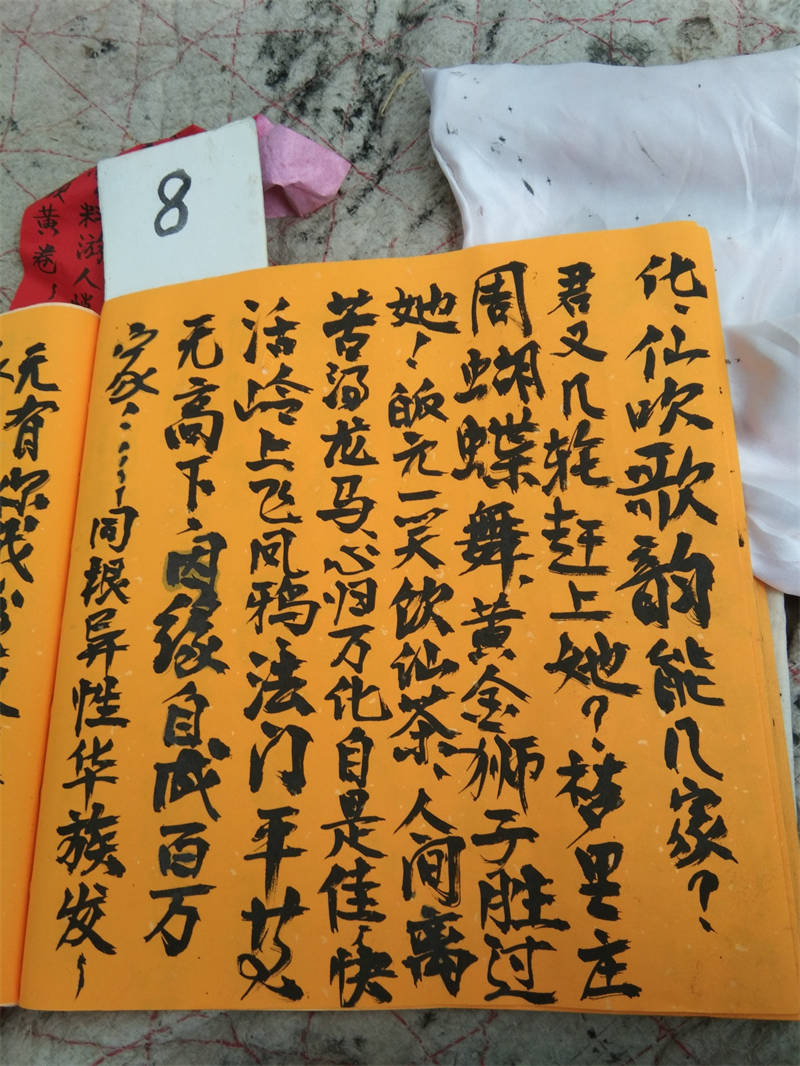 化、仙吹歌韵能几家？、
君又几轮赶上她？、梦里庄
周蝴蝶舞、黄金狮子胜过
她！皈元一笑饮仙茶、人间离
苦得龙马、心归万化自是佳、快
活岭上飞凤鸦法门平等
无高下、因缘自成百万
家、……同根异性华族发、
元有你我
8
黄卷、
料游人